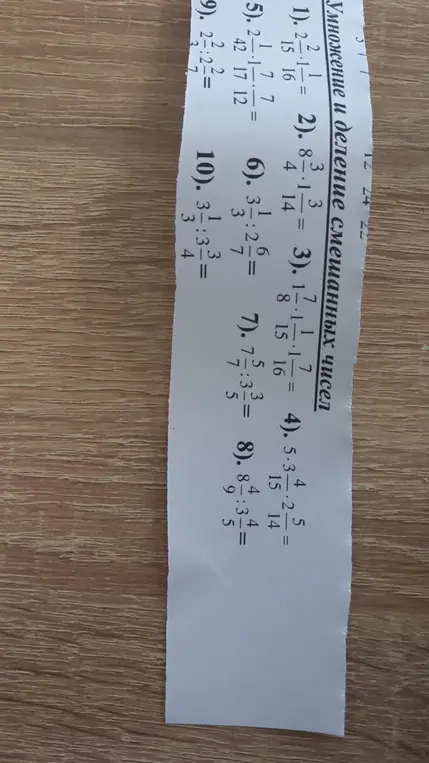 Умножение и деление смешанных чисел
1). 2 2/15 · 1 1/16 = 2). 8 3/4 · 1 3/14 = 3). 1 7/8 · 1 1/15 · 1 7/16 = 4). 5 · 3 4/15 · 2 5/14 =
5). 2 1/42 · 1 7/17 · 7/12 = 6). 3 1/3 : 2 6/7 = 7). 7 5/7 : 3 3/5 = 8). 8 4/9 : 3 4/5 =
9). 2 2/3 : 2 2/7 = 10). 3 1/3 : 3 3/4 =